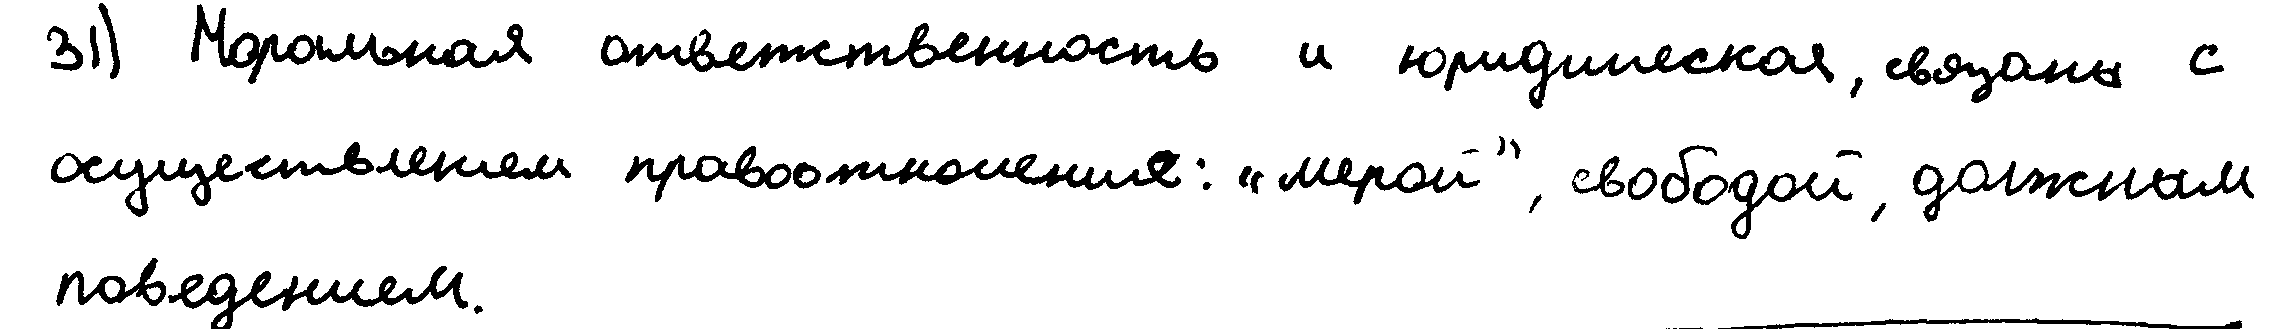 31) Моральная ответственность и юридическая, связаны с
осуществлением правоотношение: "мерой", свободой, должным
поведением.